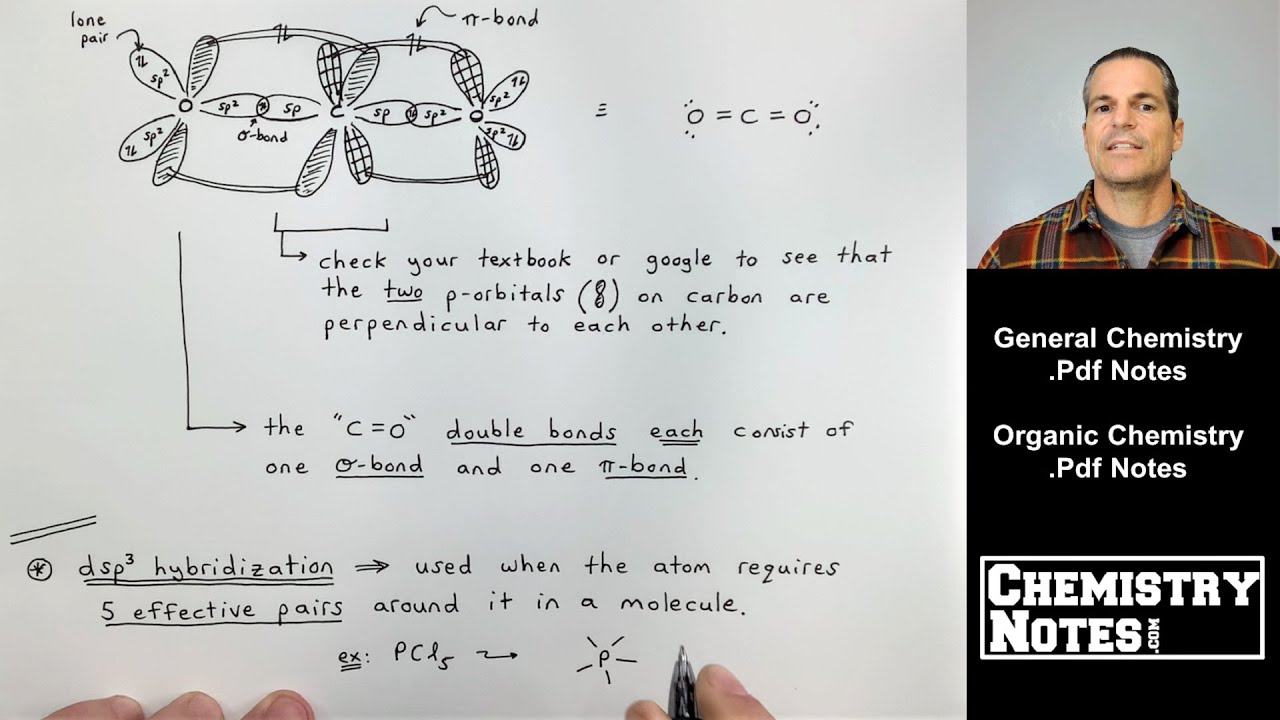 lone
pair
π-bond
⥮
⥮
⥮
sp²
⥮
sp²
O
sp²
sp
C
sp
sp²
O
sp²
⥮
sp²
⥮
σ-bond
≡
:Ö = C = Ö:
check your textbook or google to see that
the two p-orbitals (8) on carbon are
perpendicular to each other.
the "C=O" double bonds each consist of
one σ-bond and one π-bond.
* dsp³ hybridization ⇒ used when the atom requires
5 effective pairs around it in a molecule.
ex: PCl₅ → P
General Chemistry
.Pdf Notes
Organic Chemistry
.Pdf Notes
CHEMISTRY
NOTES.COM